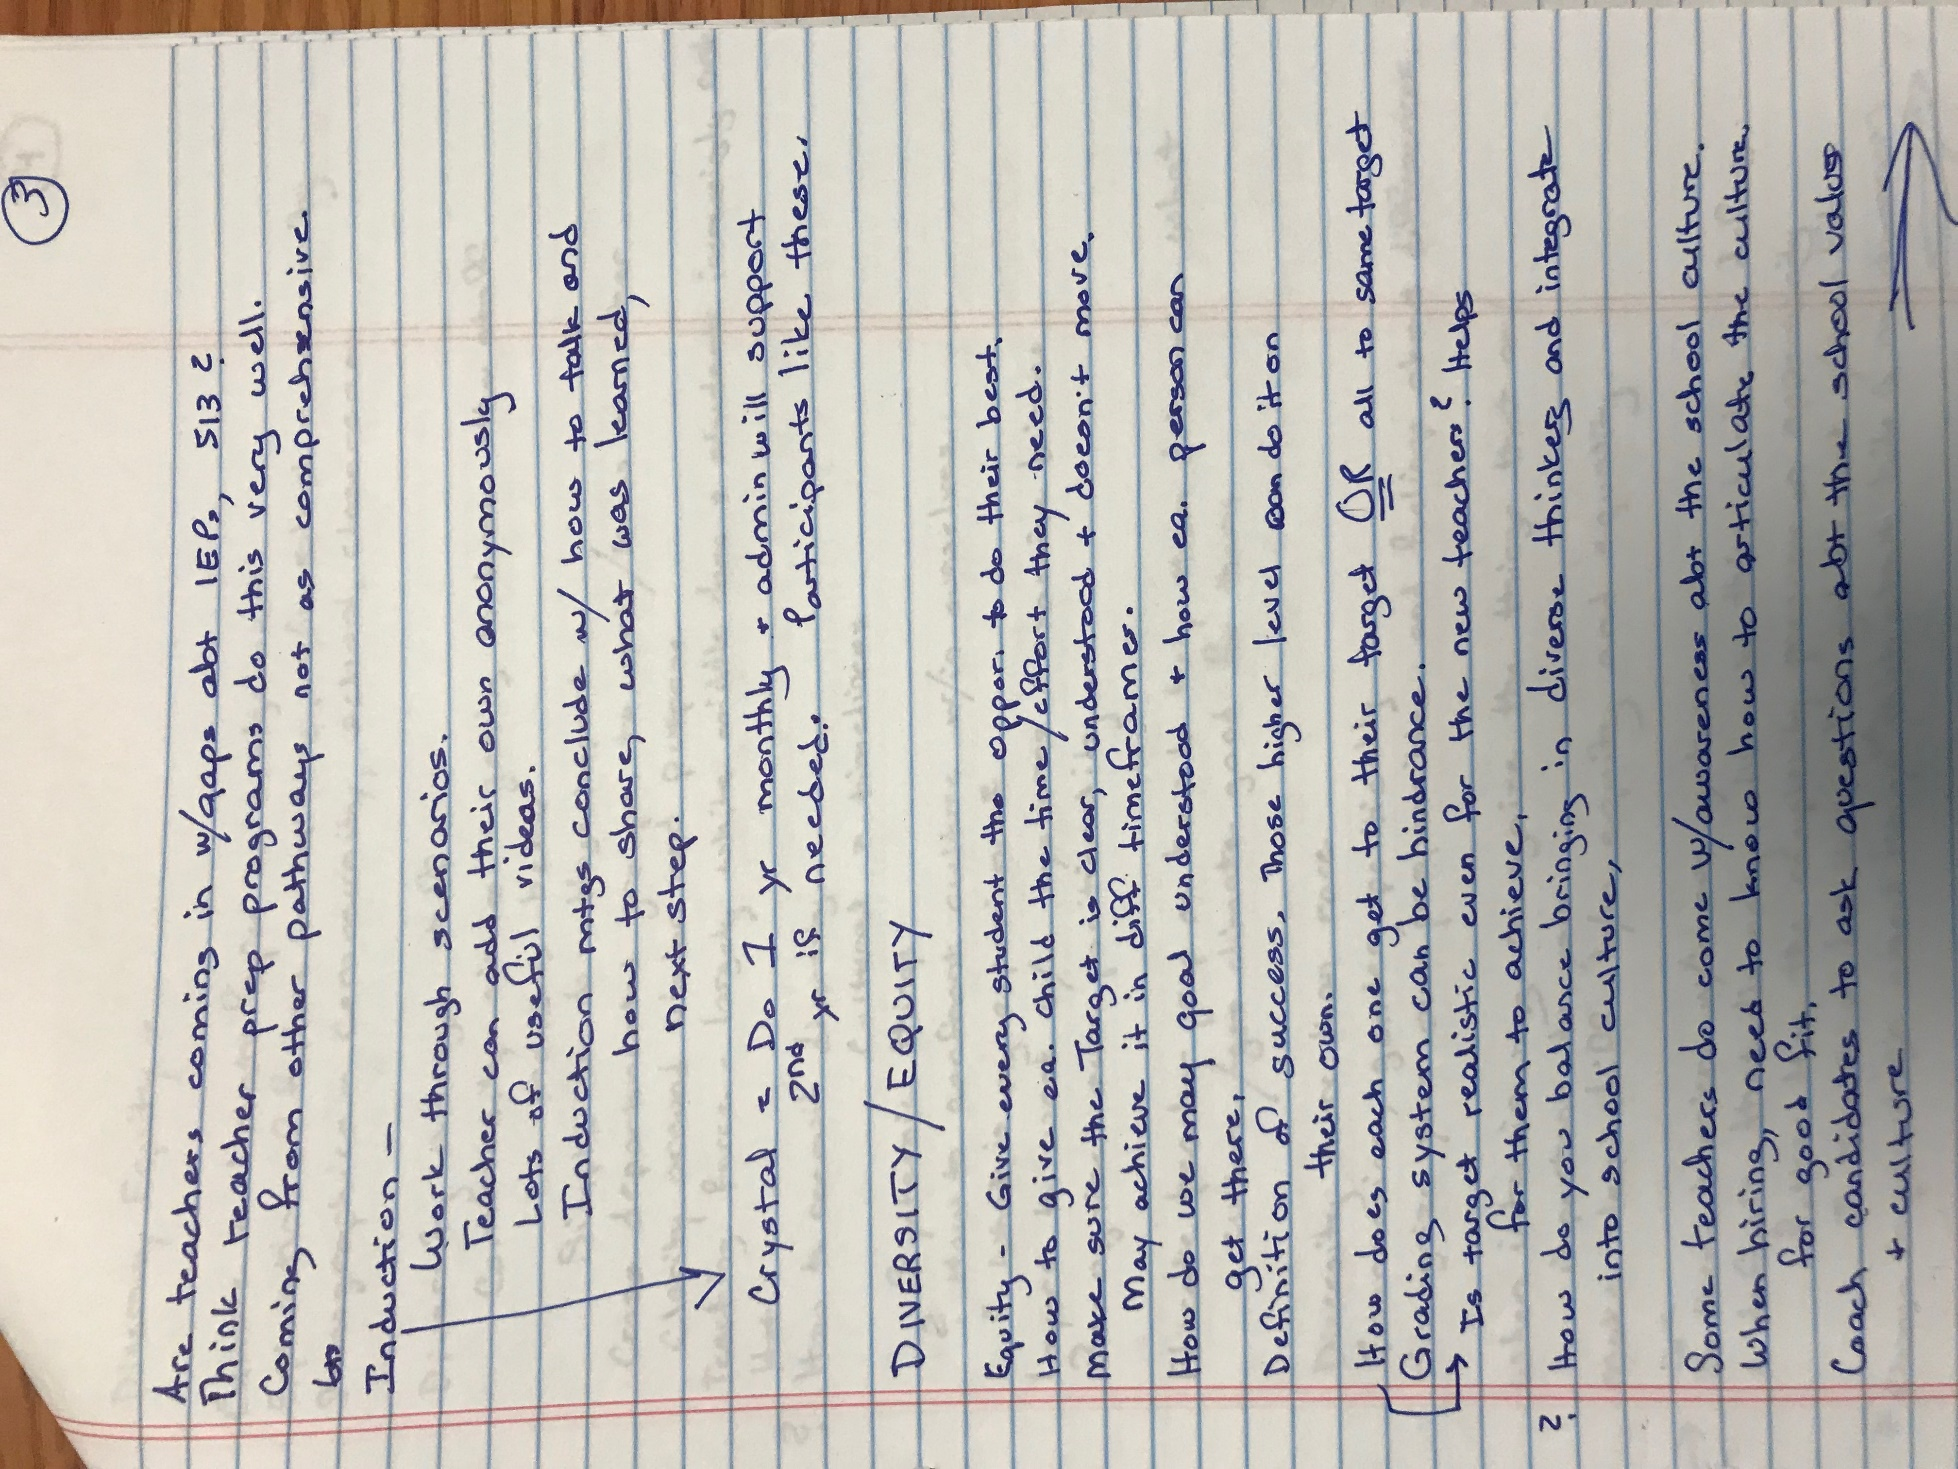 3
Are teachers coming in w/gaps abt IEPs, 513?
Think teacher prep programs do this very well.
Coming from other pathways not as comprehensive.
Induction -
Work through scenarios.
Teacher can add their own anonymously
Lots of useful videos.
Induction mtgs conclude w/ how to talk and
how to share, what was learned,
next step.
Crystal = Do 1 yr monthly + admin will support
2nd yr if needed. Participants like these.
DIVERSITY/EQUITY
Equity - Give every student the oppor. to do their best.
How to give ea. child the time/effort they need.
Make sure the Target is clear, understood + doesn't move.
May achieve it in diff timeframes.
How do we may goal understood + how ea. person can
get there.
Definition of success. Those higher level can do it on
their own.
How does each one get to their target OR all to same target
Grading system can be hindrance.
→ Is target realistic even for the new teachers? Helps
for them to achieve.
? How do you balance bringing in diverse thinkers and integrate
into school culture.
Some teachers do come w/awareness abt the school culture.
When hiring, need to know how to articulate the culture.
for good fit.
Coach candidates to ask questions abt the school values
+ culture